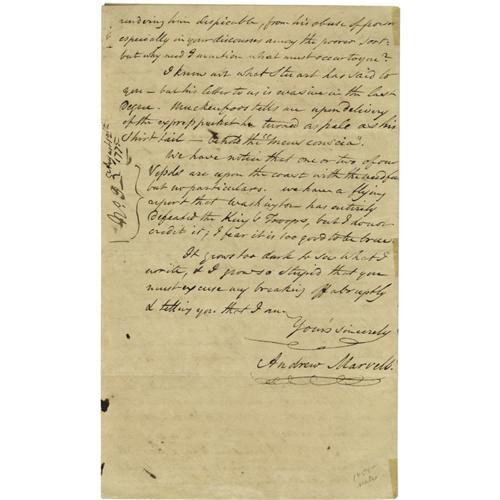 rendering him despicable, from his abuse of power
especially in your discourses among the poorer sort.
but why need I mention what must occur to you?
I know not what Stuart has said to
you — but his letter to us is evasive in the last
Degree. Muckenfoos tells me upon delivery
of the express packet he turned as pale as his
Shirt tail — the "mens conscia".
We have notice that one or two of our
Vessels are upon the coast with the needful
but no particulars. we have a flying
report that Washington has entirely
Defeated the King's Troops, but I do not
credit it; I fear it is too good to be true.
It grows too dark to see what I
write, & I grow so stupid that you
must excuse my breaking off abruptly
& telling you that I am
Yours sincerely
Andrew Marvell.
No. 9
1775